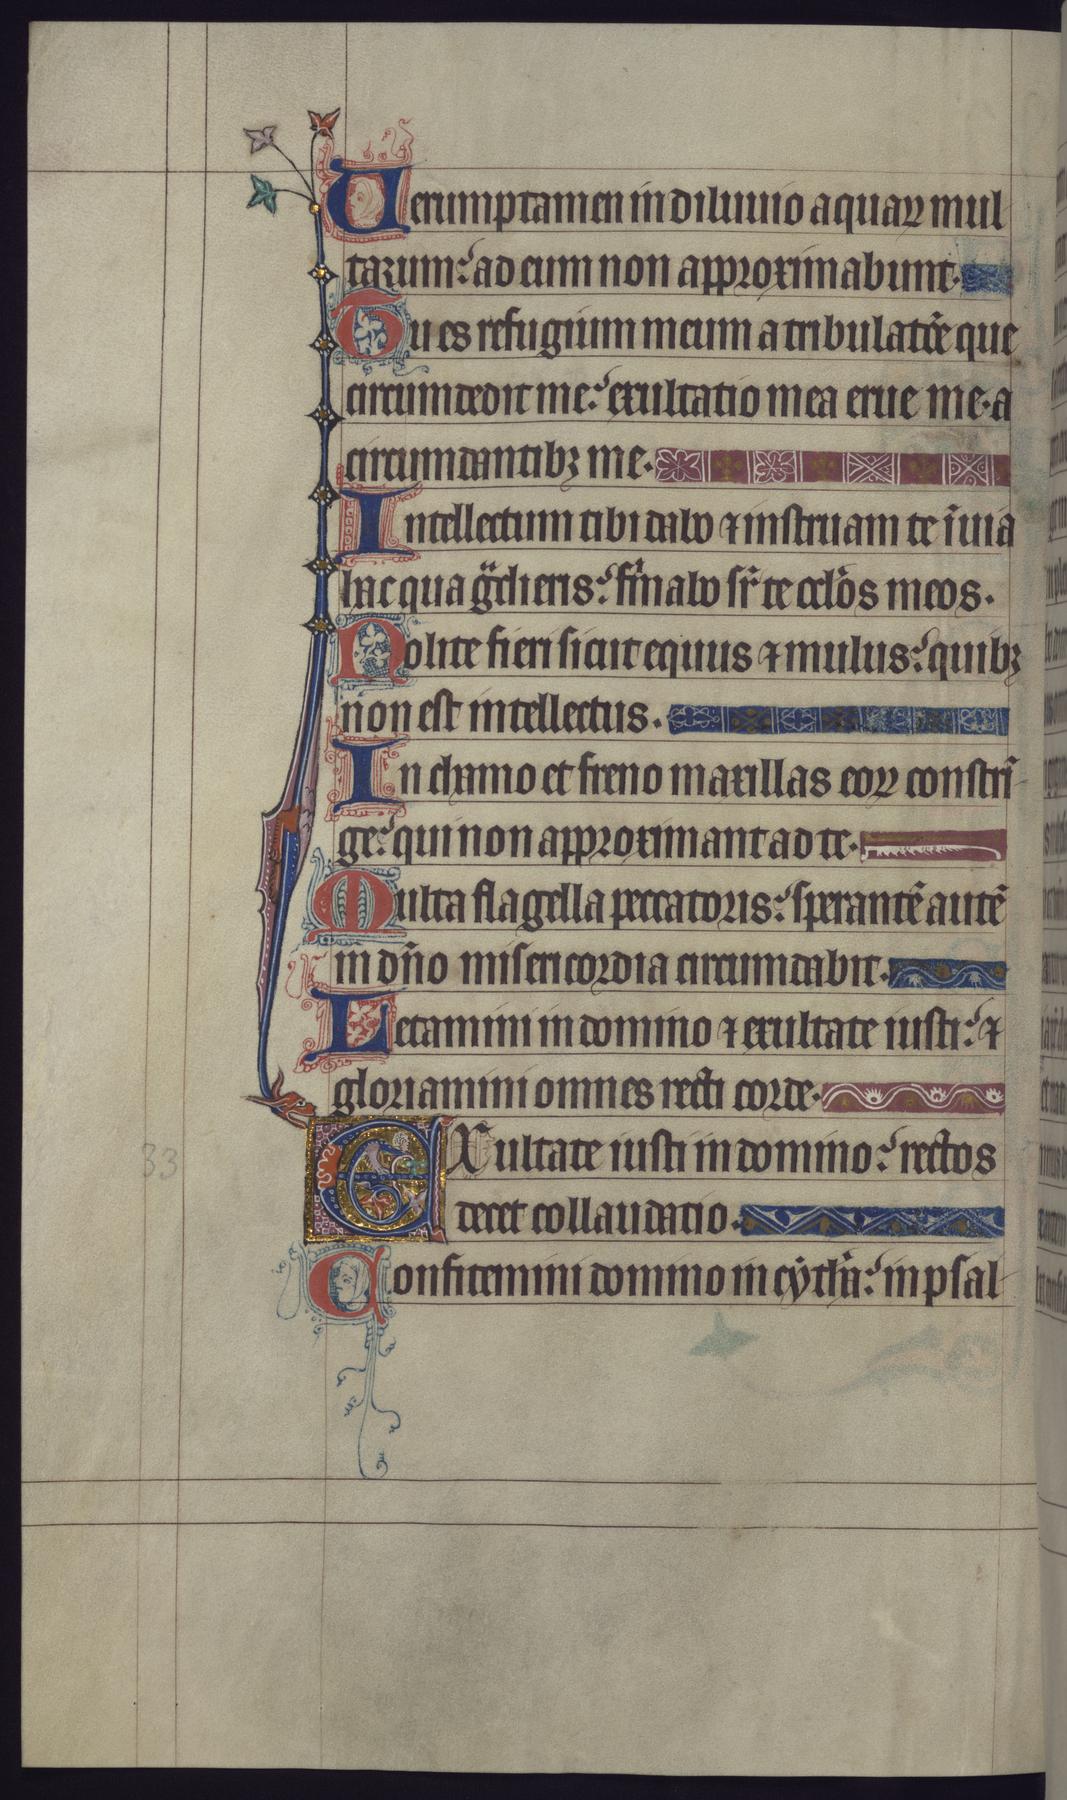 Uerumptamen in diluuio aquaꝝ mul
tarum: ad eum non approximabunt.
Tu es refugium meum a tribulatōe que
circumdedit me: exultatio mea erue me. a
circumdantibꝫ me.
Intellectum tibi dabo ⁊ instruam te ī uia
hac qua g̃dieris: firmabo sr̄ te oc̄los meos.
Nolite fieri sicut equus ⁊ mulus: quibꝫ
non est intellectus.
In chamo et freno maxillas eoꝝ constrī
ge: qui non approximant ad te.
Multa flagella peccatoris: sperantē autē
in dn̄o misericordia circumdabit.
Letamini in domino ⁊ exultate iusti: ⁊
gloriamini omnes recti corde.
EXultate iusti in domino: rectos
decet collaudatio.
Confitemini domino in cythͣa: in psal
33